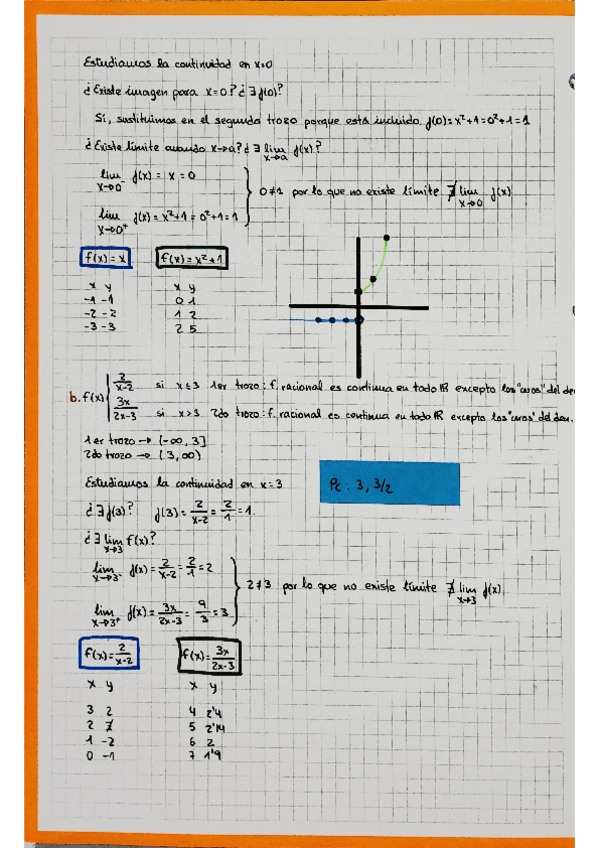 Estudiamos la continuidad en x=0
¿Existe imagen para x=0? ¿∃ f(0)?
Sí, sustituimos en el segundo trozo porque está incluido. f(0)=x²+1=0²+1=1
¿Existe límite cuando x→a? ¿∃ lim x→a f(x)?
lim x→0⁻ f(x)= x = 0
0≠1 por lo que no existe límite ∄ lim x→0 f(x)
lim x→0⁺ f(x)= x²+1 = 0²+1=1
f(x)=x
f(x)=x²+1
x y
-1 -1
-2 -2
-3 -3
x y
0 1
1 2
2 5
b. f(x) { 2/x-2 si x≤3 1er trozo: f. racional es continua en todo ℝ excepto los "ceros" del den
3x/2x-3 si x>3 2do trozo: f. racional es continua en todo ℝ excepto los "ceros" del den.
1er trozo → (-∞, 3]
2do trozo → (3, ∞)
Estudiamos la continuidad en x=3
Pc: 3, 3/2
¿∃ f(3)? f(3)= 2/x-2 = 2/1 = 1.
¿∃ lim x→3 f(x)?
lim x→3⁻ f(x)= 2/x-2 = 2/1 = 2
2≠3 por lo que no existe límite ∄ lim x→3 f(x)
lim x→3⁺ f(x)= 3x/2x-3 = 9/3 = 3
f(x)= 2/x-2
f(x)= 3x/2x-3
x y
3 2
2 ∄
1 -2
0 -1
x y
4 2'4
5 2'14
6 2
7 1'9